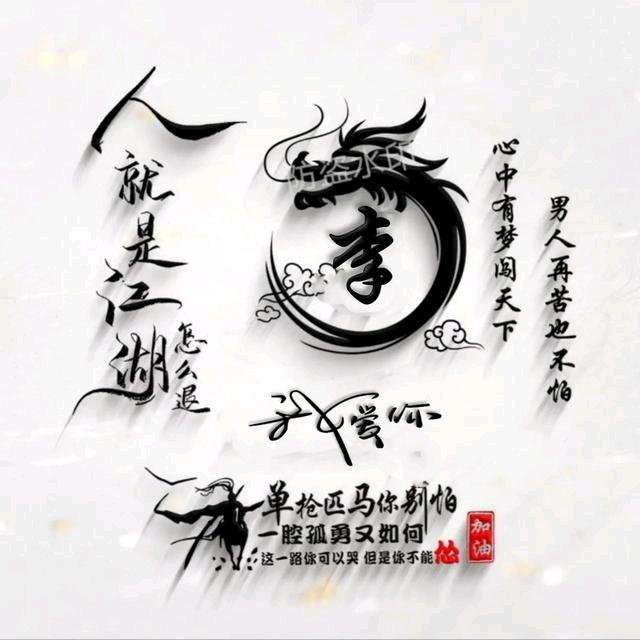 人就是江湖
怎么退
防盗水印
李
心中有梦闯天下
男人再苦也不怕
我爱你
单枪匹马你别怕
一腔孤勇又如何
这一路你可以哭 但是你不能怂
加油